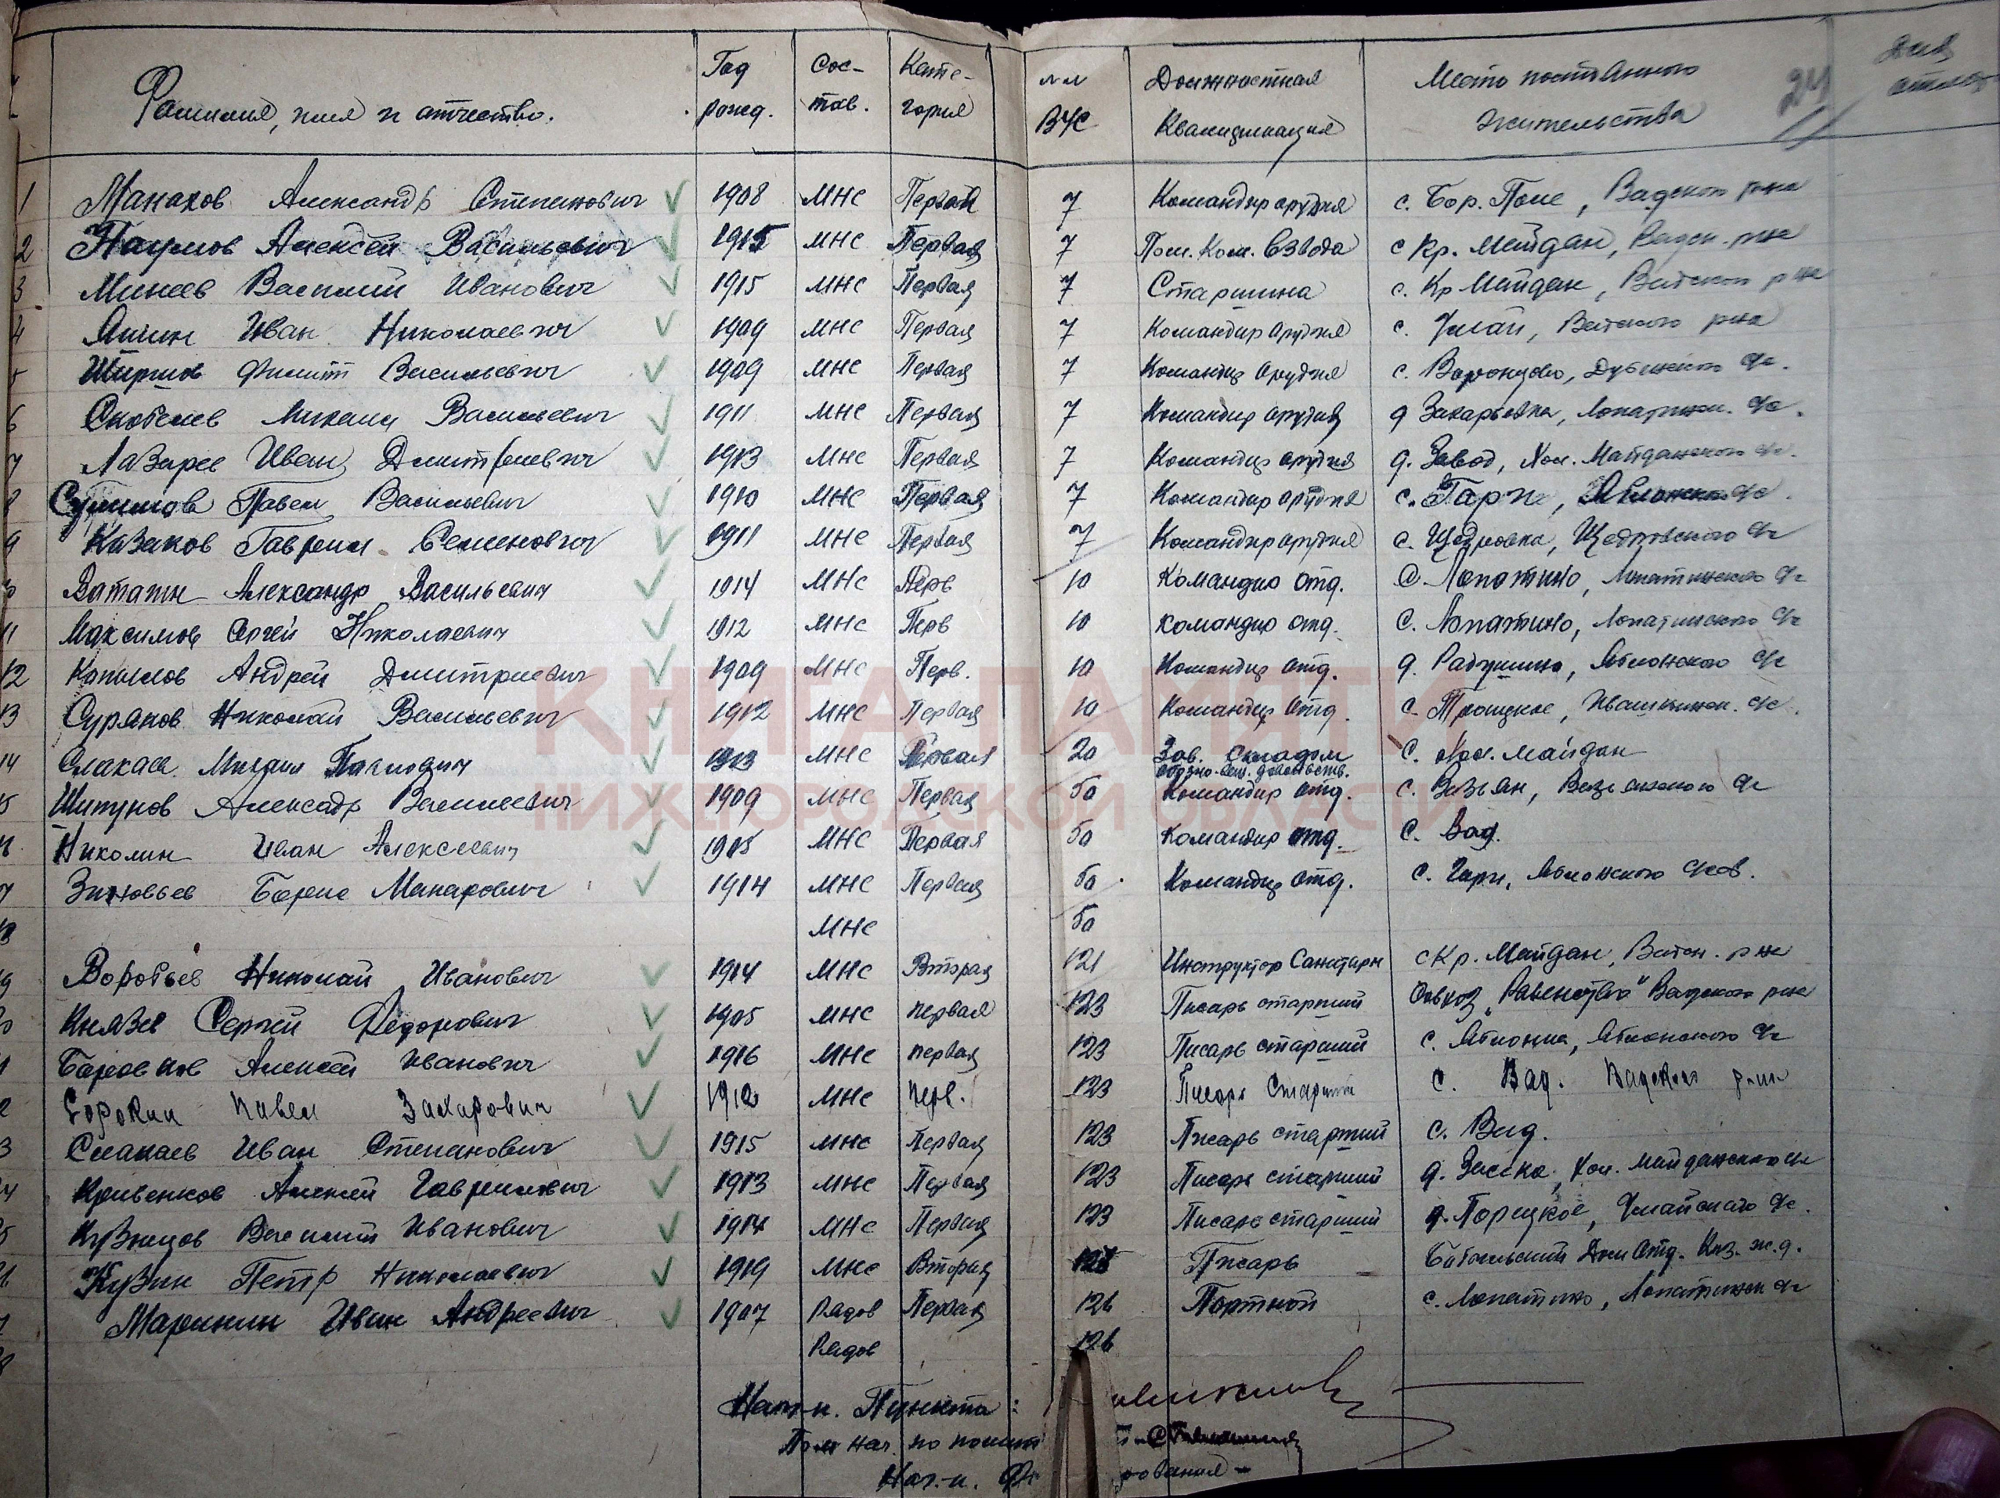 Фамилия, имя и отчество. Год рожд. Сос-тав. Кате-гория №№ ВУС Должностная Квалификация Место постоянного жительства 24 Для
1 Манахов Александр Степанович 1908 МНС Первая 7 Командир орудия с. Бор. Поле, Вадского р-на
2 Наумов Алексей Васильевич 1915 МНС Первая 7 Пом. Ком. Взвода с Кр. Майдан, Вадск. р-на
3 Минеев Василий Иванович 1915 МНС Первая 7 Старшина с. Кр Майдан, Вадского р-на
4 Яшин Иван Николаевич 1909 МНС Первая 7 Командир орудия с. Умай, Вадского р-на
5 Филипп Васильевич 1909 МНС Первая 7 Командир орудия с. Воронцово, Дубенского с/с.
6 Скобелев Михаил Васильевич 1911 МНС Первая 7 Командир орудия д Захарьевка, Лопатинск. с/с.
7 Лазарев Иван Дмитриевич 1913 МНС Первая 7 Командир орудия д. Завод, Хол. Майданского с/с.
8 Павел Васильевич 1910 МНС Первая 7 Командир орудия с. Гари, Яблонского с/с.
9 Казаков Гаврил Семенович 1911 МНС Первая 7 Командир орудия с. Щедровка, Щедровского с/с
Ватагин Александр Васильевич 1914 МНС Перв 10 Командир отд. с. Лопатино, Лопатинского с/с
11 Максимов Сергей Николаевич 1912 МНС Перв 10 командир отд. с. Лопатино, Лопатинского с/с
12 Копылов Андрей Дмитриевич 1909 МНС Перв. 10 Командир отд. д. Радушино, Яблонского с/с
13 Суряков Николай Васильевич 1912 МНС Первая 10 Командир отд. с. Троицкое, Ивашкинск. с/с.
14 Слакаев Михаил Павлович 1913 МНС Первая 20 Зав. складом обозно-вещ. довольств. с. Хол. Майдан
5 Шипунов Александр Васильевич 1909 МНС Первая 50 Командир отд. с. Вазьян, Вазьянского с/с
Николин Иван Алексеевич 1905 МНС Первая 50 Командир отд. с. Вад.
Зиновьев Борис Макарович 1914 МНС Первая 50 Командир отд. с. Гари, Яблонского с/сов.
18 МНС 50
9 Воробьев Николай Иванович 1914 МНС Вторая 121 Инструктор Санитарн с Кр. Майдан, Вадск. р-на
Князев Сергей Федорович 1905 МНС первая 123 Писарь старший Совхоз „Равенство" Вадского р-на
Алексей Иванович 1916 МНС первая 123 Писарь старший с. Яблонка, Яблонского с/с
2 Сорокин Павел Захарович 1912 МНС перв. 123 Писарь Старший с. Вад. Вадского р-на
3 Слакаев Иван Степанович 1915 МНС Первая 123 Писарь старший с. Вад.
Кривенков Алексей Гаврилович 1913 МНС Первая 123 Писарь старший д. Засека, Хол. Майданского с/с
5 Кузнецов Василий Иванович 1914 МНС Первая 123 Писарь старший д. Порецкое, Умайского с/с.
Кузин Петр Николаевич 1919 МНС Вторая Писарь Отд. Каз. ж.д.
Маринин Иван Андреевич 1907 Рядов Первая 126 Портной с. Лопатино, Лопатинск с/с
8 Рядов 126
Нач-к. Пункта:
Пом нач. по полит
Нач-к.
КНИГА ПАМЯТИ
НИЖЕГОРОДСКОЙ ОБЛАСТИ